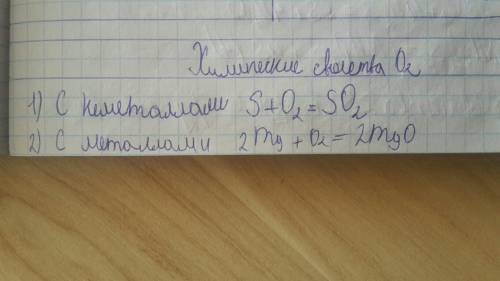 Химические свойства O₂
1) С неметаллами S+O₂=SO₂
2) С металлами 2Mg+O₂=2MgO